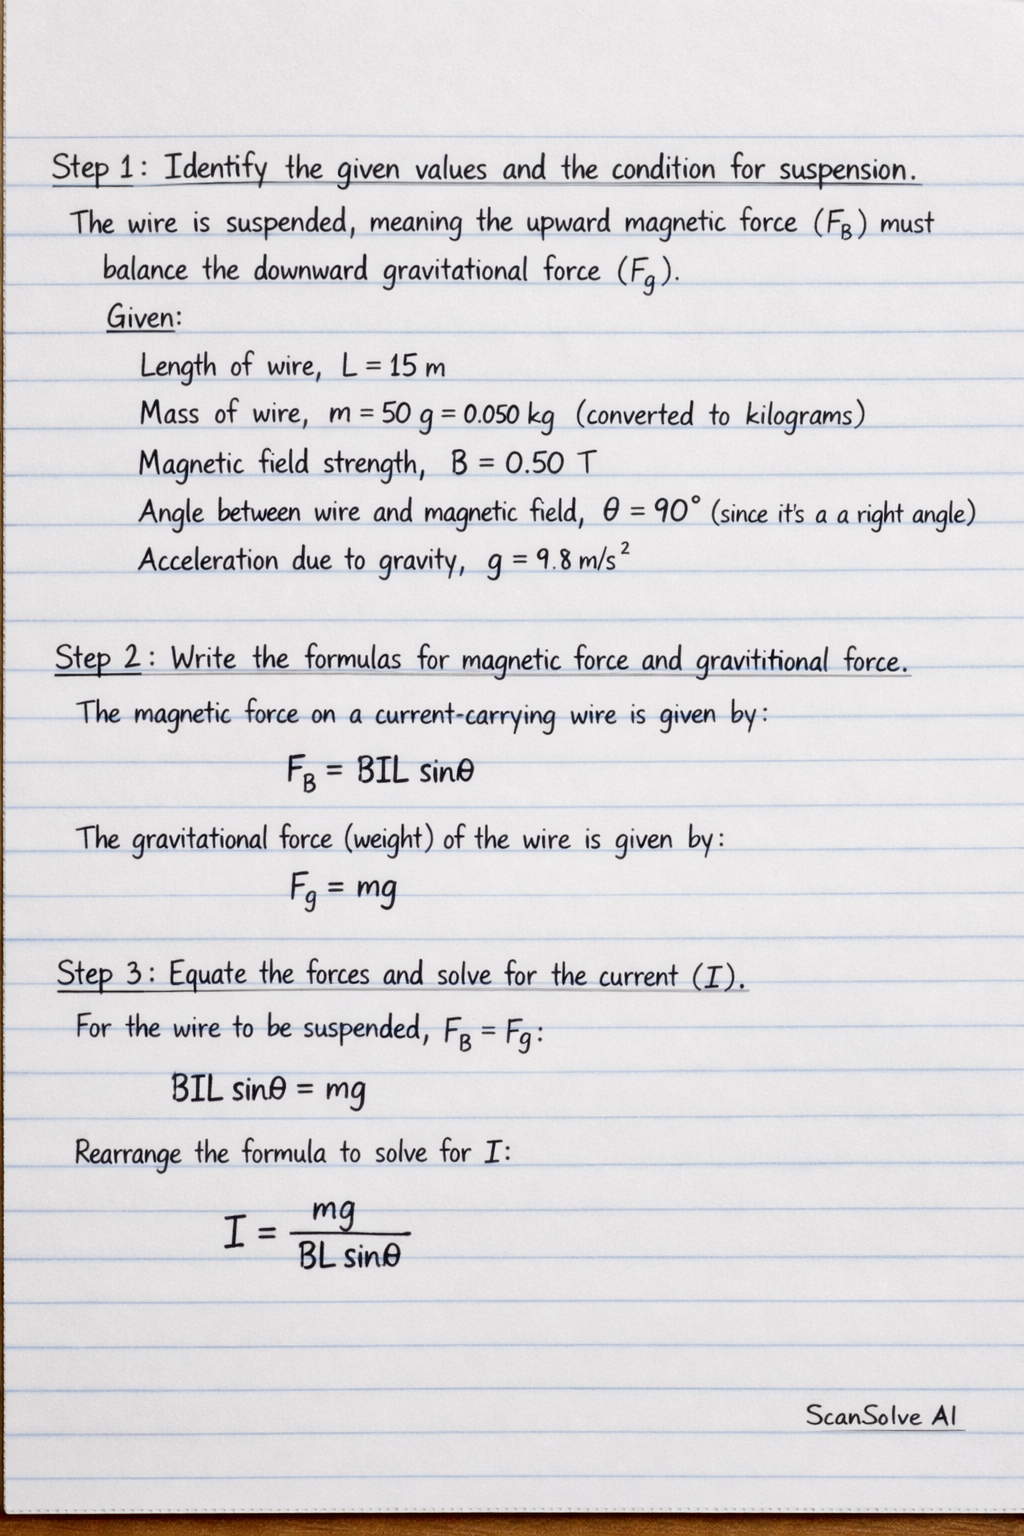 Step 1: Identify the given values and the condition for suspension.
The wire is suspended, meaning the upward magnetic force (F_B) must
balance the downward gravitational force (F_g).
Given:
Length of wire, L = 15 m
Mass of wire, m = 50 g = 0.050 kg (converted to kilograms)
Magnetic field strength, B = 0.50 T
Angle between wire and magnetic field, θ = 90° (since it's a a right angle)
Acceleration due to gravity, g = 9.8 m/s²
Step 2: Write the formulas for magnetic force and gravititional force.
The magnetic force on a current-carrying wire is given by:
F_B = BIL sinθ
The gravitational force (weight) of the wire is given by:
F_g = mg
Step 3: Equate the forces and solve for the current (I).
For the wire to be suspended, F_B = F_g:
BIL sinθ = mg
Rearrange the formula to solve for I:
I = mg / BL sinθ
ScanSolve AI